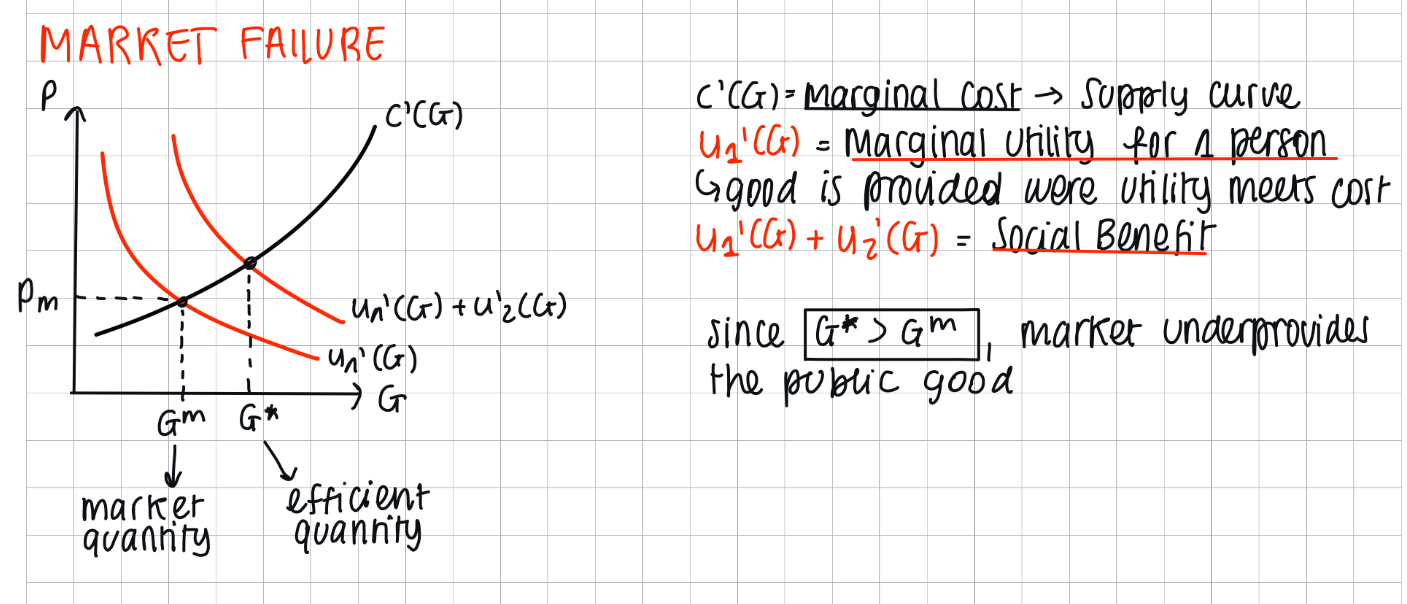 MARKET FAILURE
P
C'(G)
Pm
u1'(G) + u'2(G)
u1'(G)
G
Gm G*
market
quantity
efficient
quantity
C'(G) = Marginal Cost → Supply curve
u1'(G) = Marginal Utility for 1 person
↳ good is provided were utility meets cost
u1'(G) + u2'(G) = Social Benefit
since G* > Gm, market underprovides
the public good